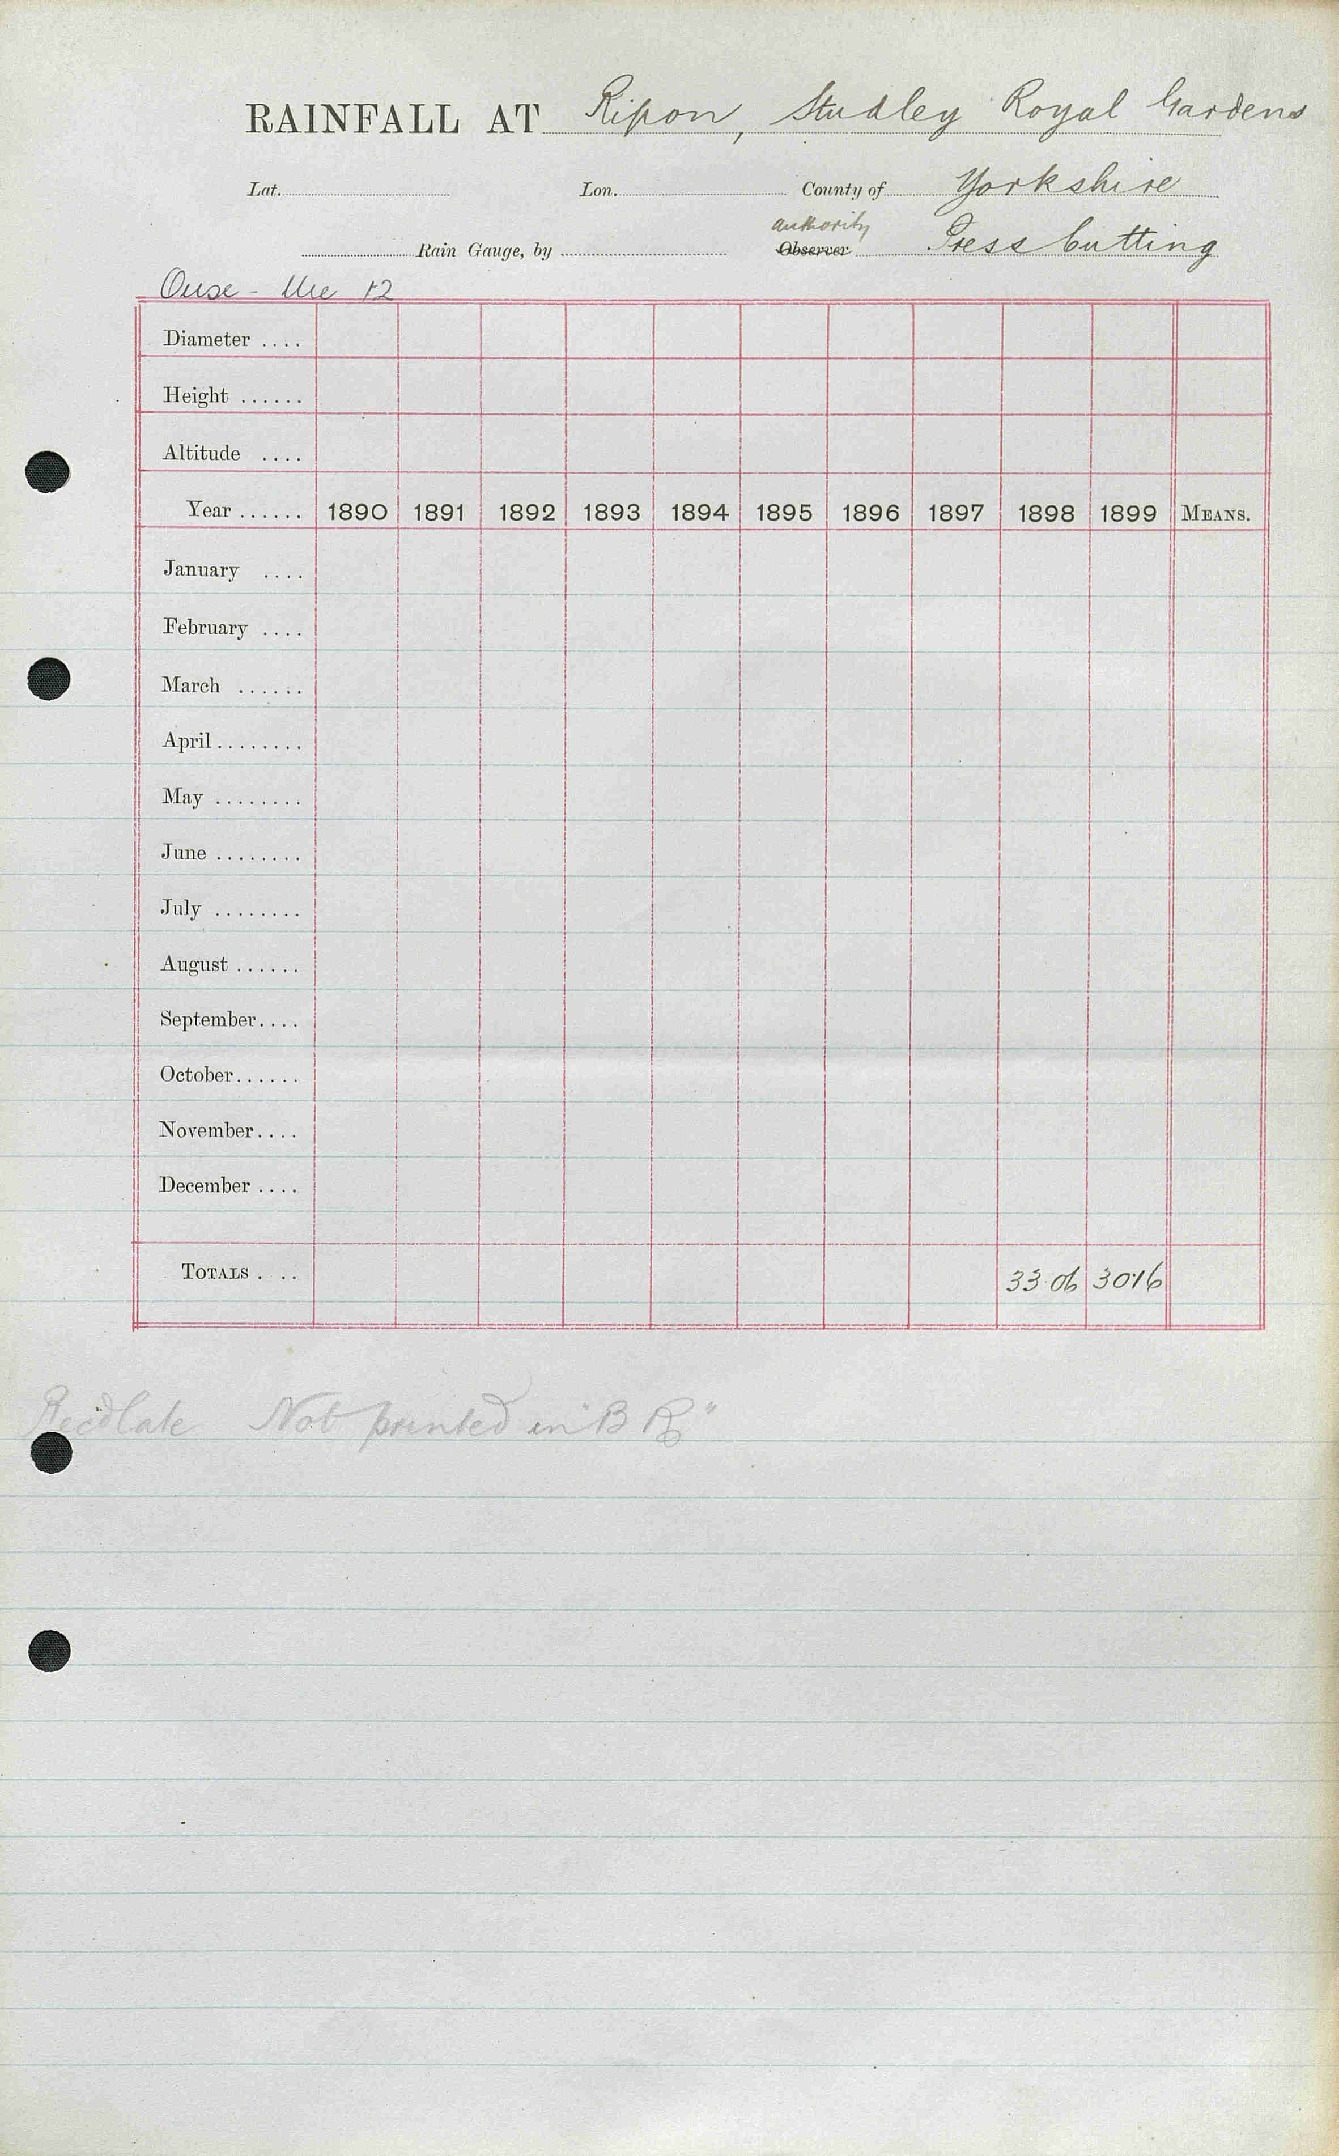 RAINFALL AT Ripon, Studley Royal Gardens
Lat. Lon. County of Yorkshire
authority
Rain Gauge, by Observer Press Cutting
Ouse - Ure 12
Diameter ....
Height ......
Altitude ....
Year ...... 1890 1891 1892 1893 1894 1895 1896 1897 1898 1899 MEANS.
January ....
February ....
March ......
April ........
May ........
June ........
July ........
August ......
September....
October......
November....
December ....
TOTALS . .. 33.06 30.16
Recd late Not printed in "B R"